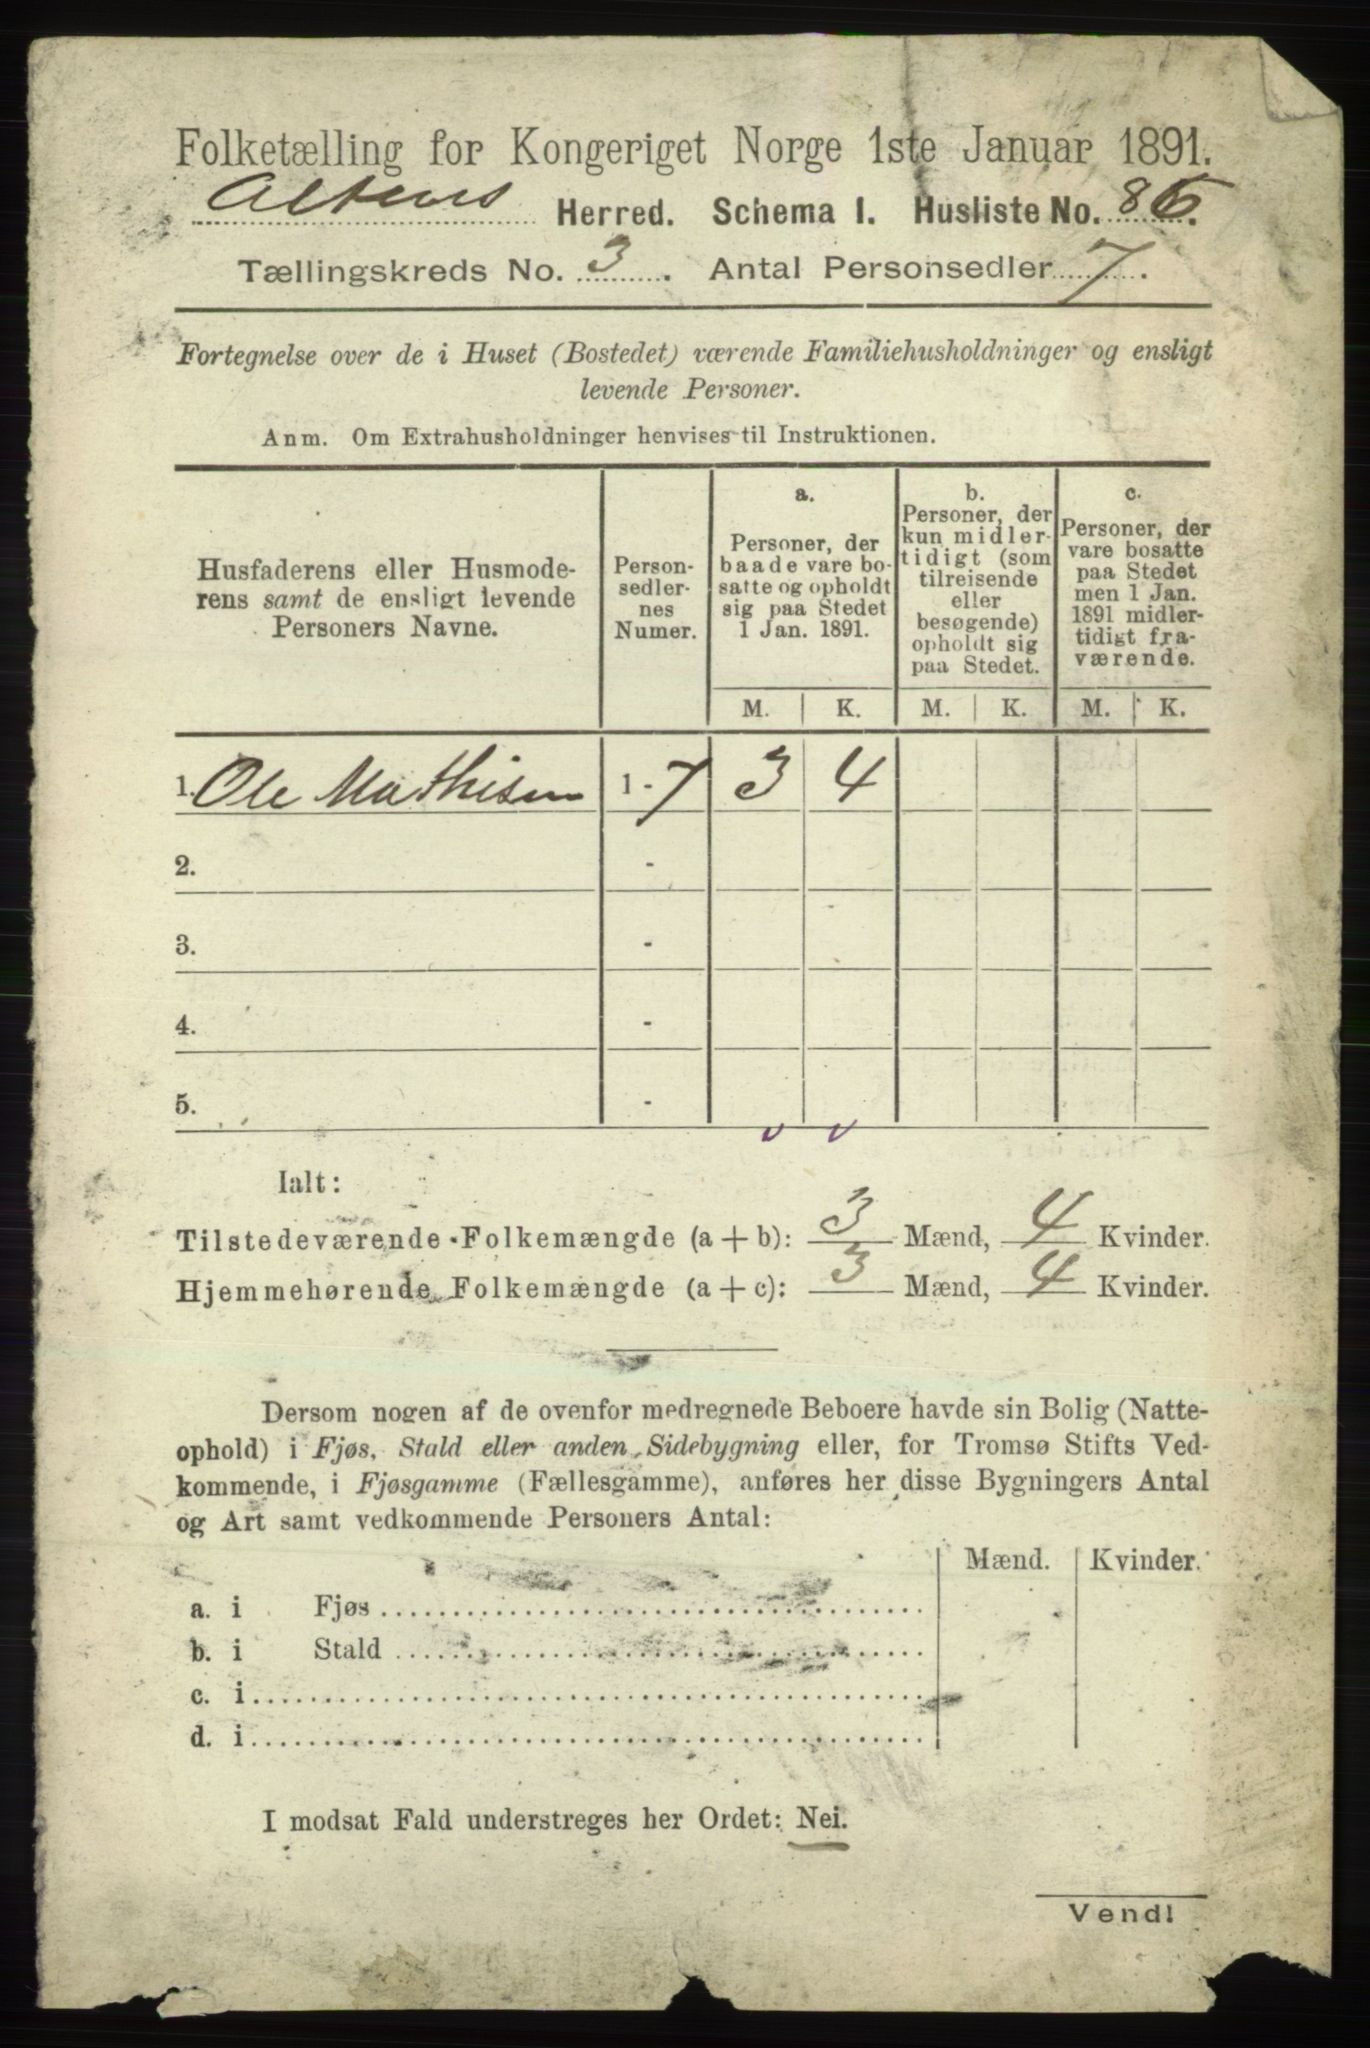 Folketælling for Kongeriget Norge 1ste Januar 1891.
Altens Herred. Schema I. Husliste No. 86.
Tællingskreds No. 3. Antal Personsedler 7.
Fortegnelse over de i Huset (Bostedet) værende Familiehusholdninger og ensligt
levende Personer.
Anm. Om Extrahusholdninger henvises til Instruktionen.
Husfaderens eller Husmode-
rens samt de ensligt levende
Personers Navne.
Person-
sedler-
nes
Numer.
a.
Personer, der
baade vare bo-
satte og opholdt
sig paa Stedet
1 Jan. 1891.
b.
Personer, der
kun midler-
tidigt (som
tilreisende
eller
besøgende)
opholdt sig
paa Stedet.
c.
Personer, der
vare bosatte
paa Stedet
men 1 Jan.
1891 midler-
tidigt fra-
værende.
M. K. M. K. M. K.
1. Ole Mathisen 1 - 7 3 4
2. -
3. -
4. -
5. -
Ialt:
Tilstedeværende Folkemængde (a + b): 3 Mænd, 4 Kvinder.
Hjemmehørende Folkemængde (a + c): 3 Mænd, 4 Kvinder.
Dersom nogen af de ovenfor medregnede Beboere havde sin Bolig (Natte-
ophold) i Fjøs, Stald eller anden Sidebygning eller, for Tromsø Stifts Ved-
kommende, i Fjøsgamme (Fællesgamme), anføres her disse Bygningers Antal
og Art samt vedkommende Personers Antal:
Mænd. Kvinder.
a. i Fjøs
b. i Stald
c. i
d. i
I modsat Fald understreges her Ordet: Nei.
Vend!